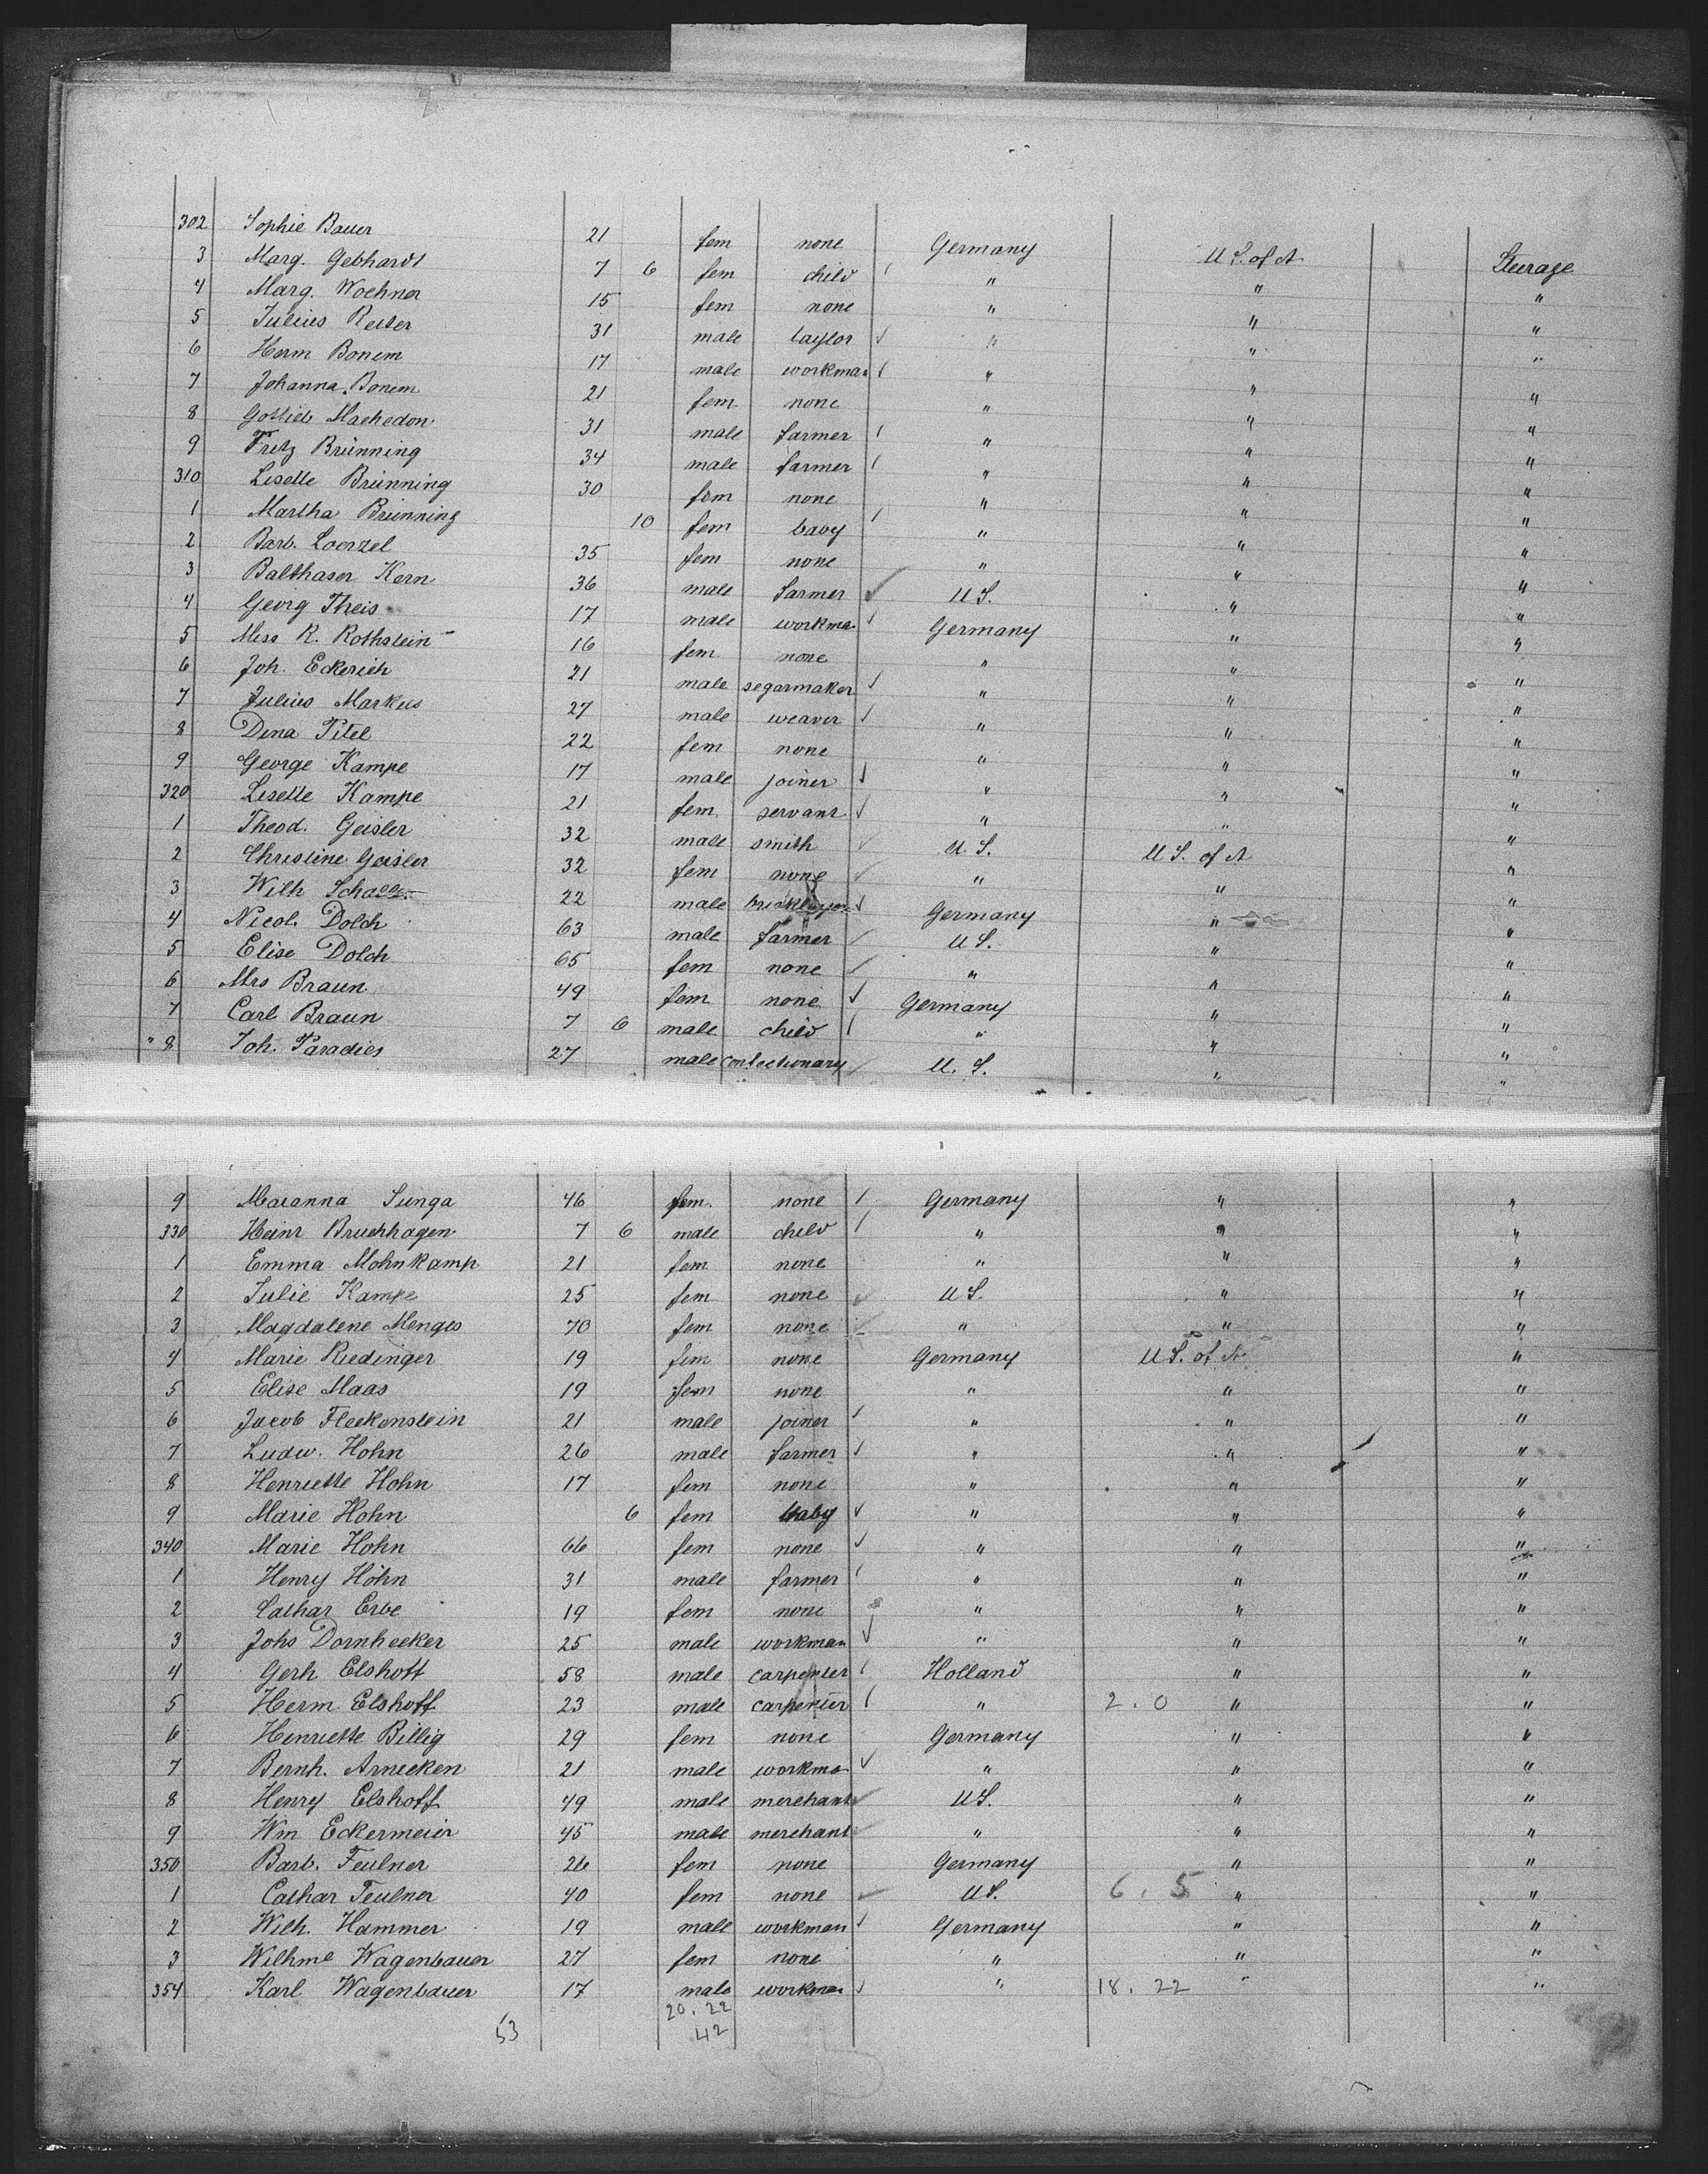 302 Sophie Bauer 21 fem none Germany U S. of A Steerage
3 Marg. Gebhardt 7 6 fem child " " "
4 Marg. Woehner 15 fem none " " "
5 Julius Reiter 31 male taylor " " "
6 Herm Bonem 17 male workman " " "
7 Johanna Bonem 21 fem none " " "
8 Gottlieb Machedon 31 male farmer " " "
9 Fritz Brünning 34 male farmer " " "
310 Lisette Brünning 30 fem none " " "
1 Martha Brünning 10 fem baby " " "
2 Barb. Loerzel 35 fem none " " "
3 Balthaser Kern 36 male farmer U S. " "
4 Georg Theis 17 male workma Germany " "
5 Miss R. Rothstein 16 fem none " " "
6 Joh. Eckerich 21 male segarmaker " " "
7 Julius Markus 27 male weaver " " "
8 Dina Pitel 22 fem none " " "
9 George Kampe 17 male joiner " " "
320 Lisette Kampe 21 fem. servant " " "
1 Theod. Geisler 32 male smith U. S. U S. of A "
2 Christine Geisler 32 fem none " " "
3 Wilh 22 male bricklayer Germany " "
4 Nicol. Dolch 63 male farmer U S. " "
5 Elise Dolch 65 fem none " " "
6 Mrs Braun 49 fem none Germany " "
7 Carl Braun 7 6 male child " " "
" 8 Joh. Paradies 27 male confectionary U. S. " "
9 Marianna Sunga 46 fem. none Germany " "
330 Heinr Bruchhagen 7 6 male child " " "
1 Emma Mohnkamp 21 fem none " " "
2 Julie Kampe 25 fem none U S. " "
3 Magdalene Menges 70 fem none " " "
4 Marie Riedinger 19 fem none Germany U S. of A "
5 Elise Maas 19 fem none " " "
6 Jacob Fleckenstein 21 male joiner " " "
7 Ludw. Hohn 26 male farmer " " "
8 Henriette Hohn 17 fem none " " "
9 Marie Hohn 6 fem baby " " "
340 Marie Hohn 66 fem none " " "
1 Henry Höhn 31 male farmer " " "
2 Cathar Erbe 19 fem none " " "
3 Johs Dornhecker 25 male workman " " "
4 Gerh Elshoff 58 male carpenter Holland " "
5 Herm Elshoff 23 male carpenter " 2. 0 " "
6 Henriette Billig 29 fem none Germany " "
7 Bernh. Arnecken 21 male workma " " "
8 Henry Elshoff 49 male merchant U S. " "
9 Wm Eckermeier 45 male merchant " " "
350 Barb. Feulner 26 fem none Germany " "
1 Cathar Feulner 40 fem none U S. 6. 5 " "
2 Wilh. Hammer 19 male workman Germany " "
3 Wilhme Wagenbauer 27 fem none " " "
354 Karl Wagenbauer 17 male workman " 18. 22 " "
20. 22
53 42